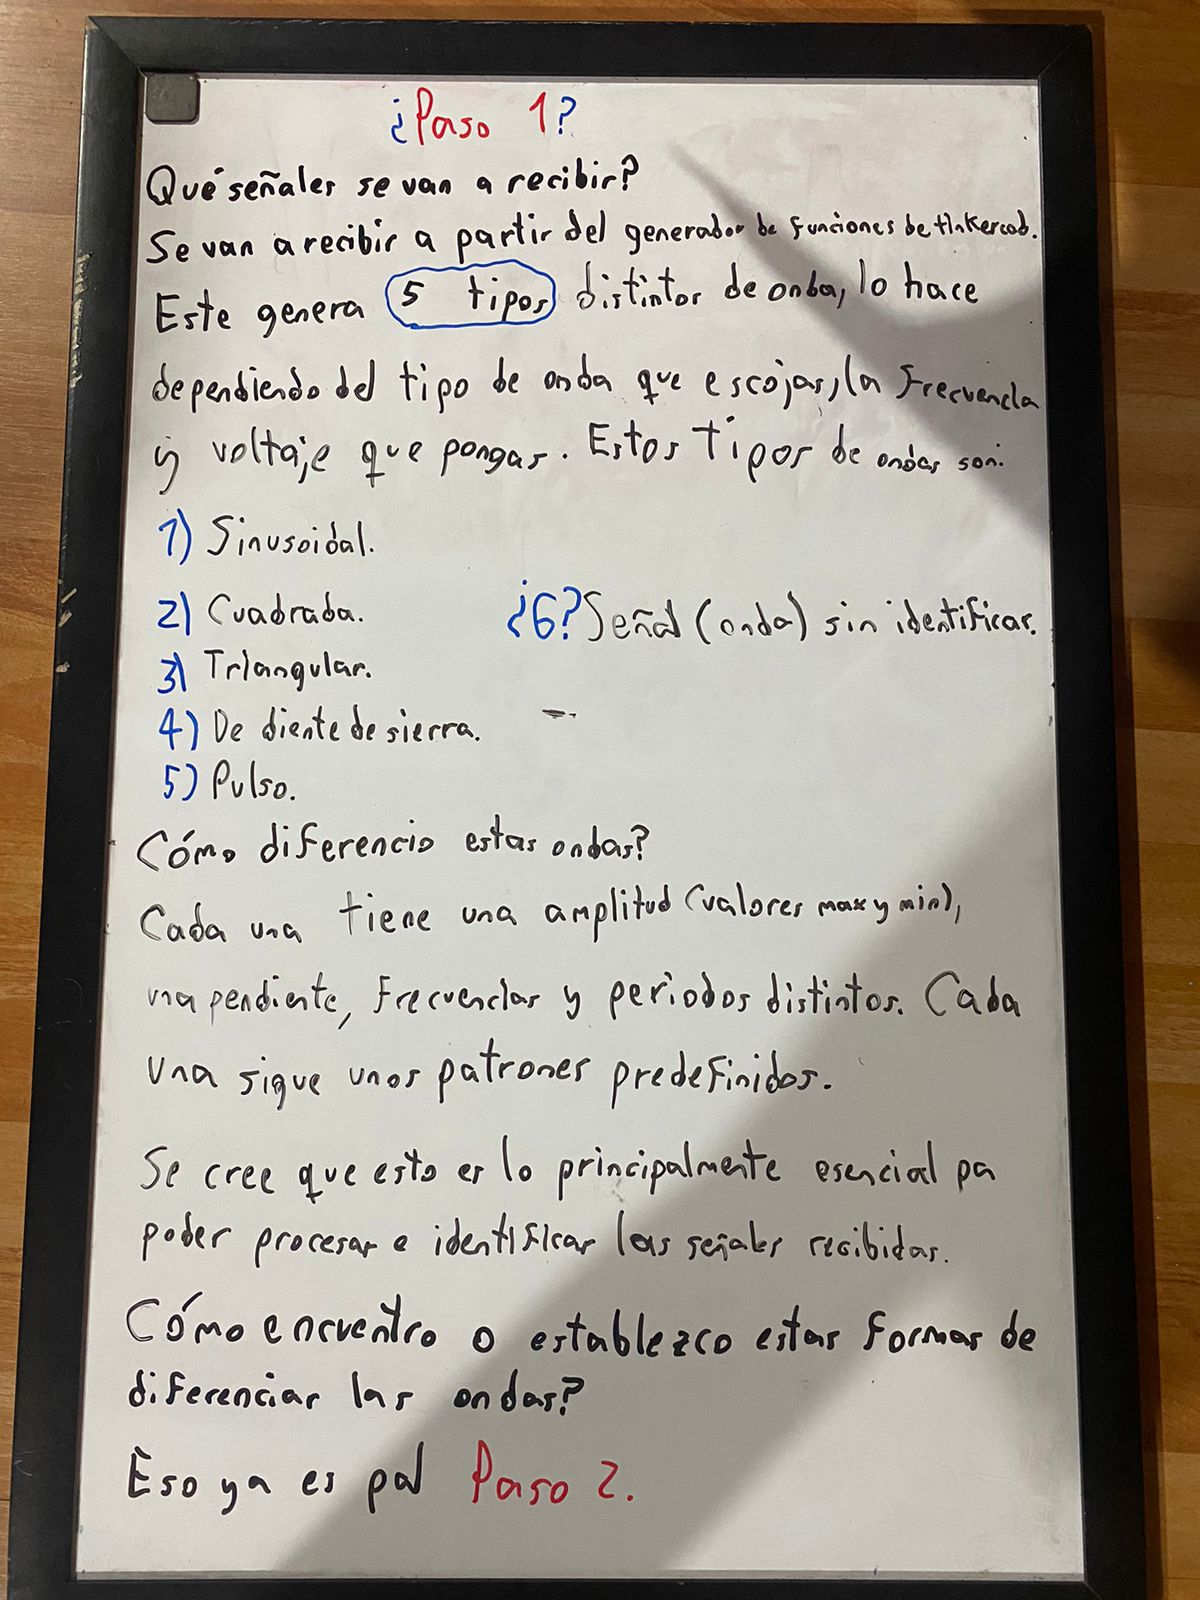 ¿Paso 1?
Qué señales se van a recibir?
Se van a recibir a partir del generador de funciones de tinkercad.
Este genera 5 tipos distintos de onda, lo hace
dependiendo del tipo de onda que escojas, la frecuencia
y voltaje que pongas. Estos tipos de ondas son:
1) Sinusoidal.
2) Cuadrada.
¿6? Señal (onda) sin identificar.
3) Triangular.
4) De diente de sierra.
5) Pulso.
Cómo diferencio estas ondas?
Cada una tiene una amplitud (valores max y min),
una pendiente, frecuencias y periodos distintos. Cada
una sigue unos patrones predefinidos.
Se cree que esto es lo principalmente esencial pa
poder procesar e identificar las señales recibidas.
Cómo encuentro o establezco estas formas de
diferenciar las ondas?
Eso ya es pal Paso 2.